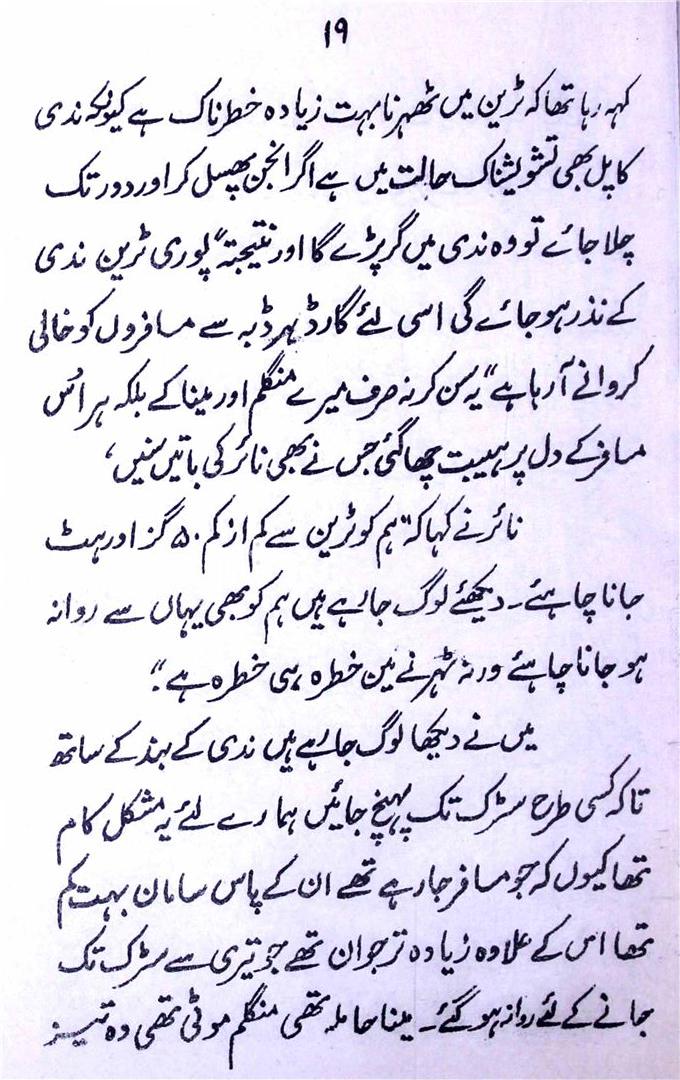 ۱۹
کہہ رہا تھا کہ ٹرین میں ٹھہرنا بہت زیادہ خطرناک ہے کیونکہ ندی
کا پل بھی تشویشناک حالت میں ہے اگر انجن پھسل کر اور دور تک
چلا جائے تو وہ ندی میں گر پڑے گا اور نتیجتہً پوری ٹرین ندی
کے نذر ہو جائے گی اسی لئے گارڈ ہر ڈبہ سے مسافروں کو خالی
کروانے آ رہا ہے" یہ سن کر نہ صرف میرے منگلم اور مینا کے بلکہ ہر اُس
مسافر کے دل پر ہیبت چھا گئی جس نے بھی نائر کی باتیں سنیں،
نائر نے کہا کہ "ہم کو ٹرین سے کم از کم ۵۰ گز اور ہٹ
جانا چاہئے۔ دیکھئے لوگ جا رہے ہیں ہم کو بھی یہاں سے روانہ
ہو جانا چاہئے ورنہ ٹہرنے مین خطرہ ہی خطرہ ہے"۔
میں نے دیکھا لوگ جا رہے ہیں ندی کے بند کے ساتھ
تاکہ کسی طرح سڑک تک پہنچ جائیں ہمارے لئے یہ مشکل کام
تھا کیوں کہ جو مسافر جا رہے تھے ان کے پاس سامان بہت کم
تھا اس کے علاوہ زیادہ تر جوان تھے جو تیزی سے سڑک تک
جانے کے لئے روانہ ہو گئے۔ مینا حاملہ تھی منگلم موٹی تھی وہ تیز